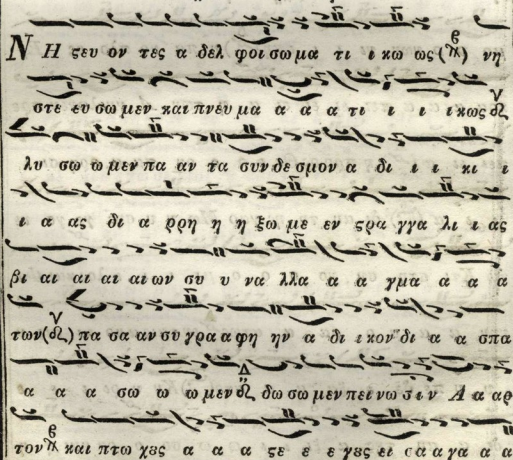 Ν Η ϛευ ον τες α δελ φοι σω μα τι ι κω ως (β) νη
στε ευ σω μεν και πνευ μα α α α τι ι ι ι κως
λυ σω ω μεν πα αν τα συν δε σμον α δι ι ι κι ι
ι α ας δι α ρρη η η ξω με εν ϛρα γγα λι ι ας
βι αι αι αι αι ων συ υ να λλα α α α γμα α α α
των πα σα αν συ γρα α φη ην α δι ι κον δι α α σπα
α α α σω ω ω μεν δω σω μεν πει νω σιν Α α αρ
τον και πτω χȣς α α α ϛε ε ε γȣς ει σα α γα α α